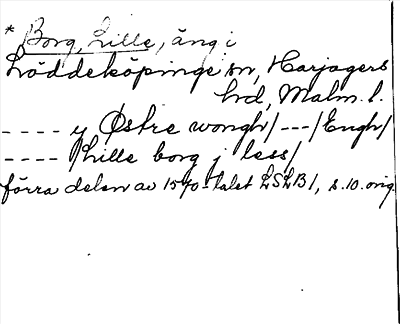 * Borg, Lille, äng i
Löddeköpinge sn, Harjagers
hd, Malm. l.
---- y Østre wongh/ ---/Engh/
---- /Lille borg j less/
förra delen av 1570-talet LSLB1, s. 10. orig.